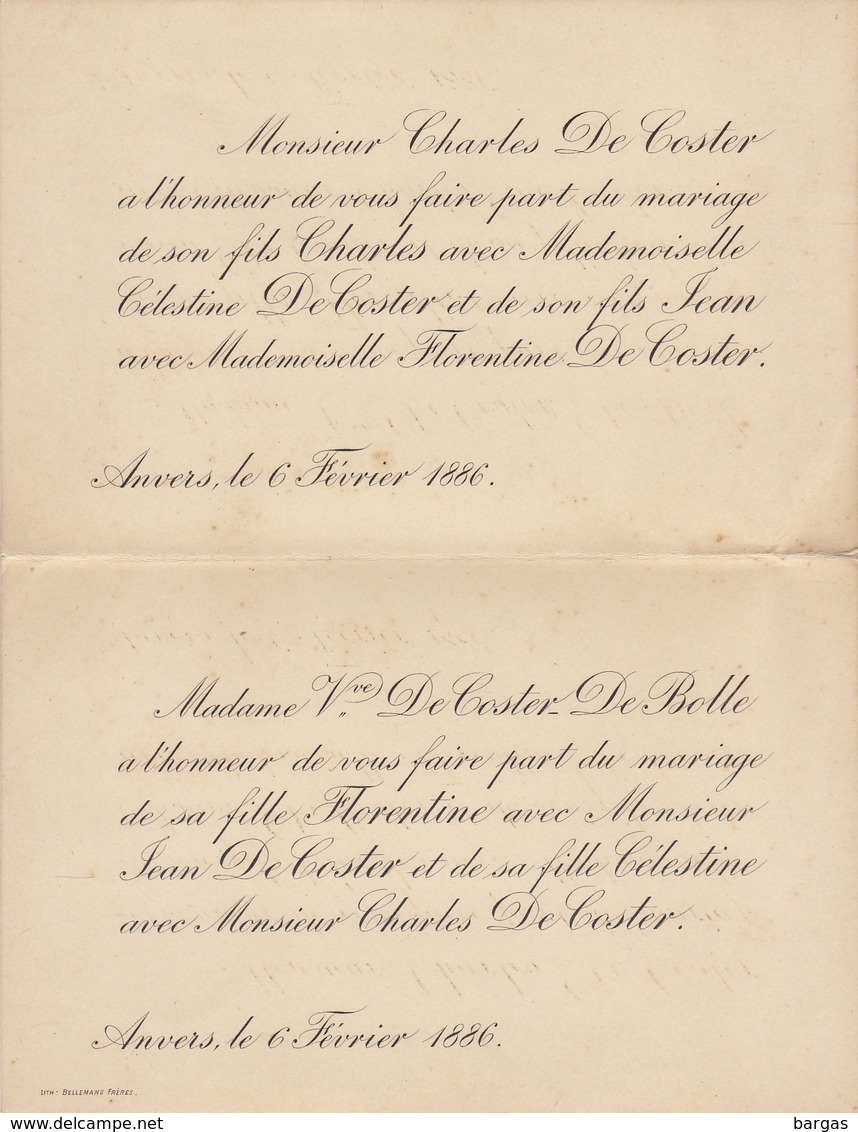 Monsieur Charles De Coster
a l'honneur de vous faire part du mariage
de son fils Charles avec Mademoiselle
Célestine De Coster et de son fils Jean
avec Mademoiselle Florentine De Coster.
Anvers, le 6 Février 1886.
Madame Vve De Coster-De Bolle
a l'honneur de vous faire part du mariage
de sa fille Florentine avec Monsieur
Jean De Coster et de sa fille Célestine
avec Monsieur Charles De Coster.
Anvers, le 6 Février 1886.
LITH: BELLEMANS FRÈRES.
www.delcampe.net
bargas